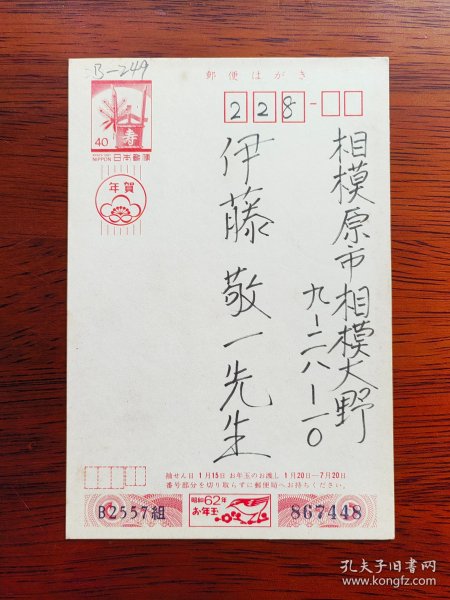 B-249
郵便はがき
40
寿
NIPPON 日本郵便
228-
年賀
相模原市相模大野
九-二八-一〇
伊藤敬一先生
抽せん日 1月15日 お年玉のお渡し 1月20日―7月20日
番号部分を切り取らずに郵便局へお持ちください。
B2557組
昭和62年
お年玉
867448
孔夫子旧书网
www.kongfz.com